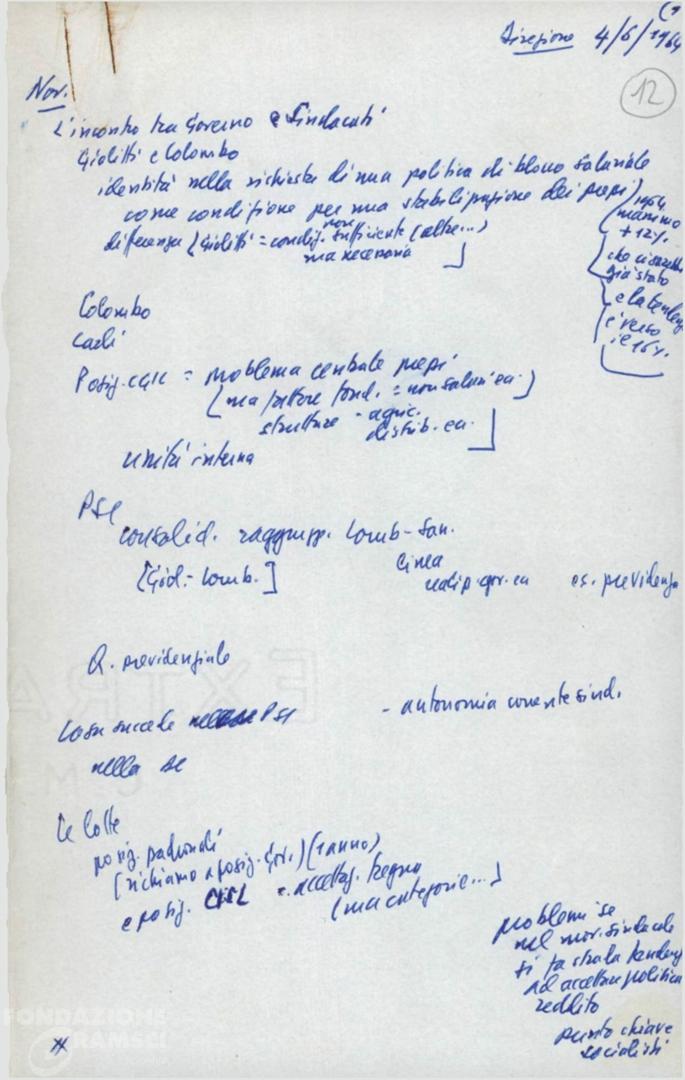 (1
Direzione 4/6/1964
12
Nov.
L'incontro tra Governo e Sindacati
Giolitti e Colombo
identità nella richiesta di una politica di blocco salariale
come condizione per una stabilizzazione dei prezzi
differenza [Giolitti = condiz. non sufficiente (altre...)
ma necessaria ]
1964
massimo
+ 12%
che ci sarebbe
già stato
e la tendenza
è verso
il 16%.
Colombo
Carli
Posiz. CGIL = problema centrale prezzi
[ma fattore fond. = non salari ecc.]
strutture - agric.
distrib. ecc.
unità interna
PSI
consolid. raggrupp. Lomb-San.
[Giol.- Lomb.]
Linea
es. previdenza
Q. previdenziale
Cosa succede nel PSI
- autonomia corrente sind.
nella DC
Le lotte
posiz. padronali
(richiamo a posiz. Gov.) (1 anno)
e posiz. CISL = accettaz. tregua
(ma categorie...)
problema se
nel mov. sindacale
si fa strada tendenza
ad accettare politica
reddito
punto chiave
socialisti
FONDAZIONE
GRAMSCI